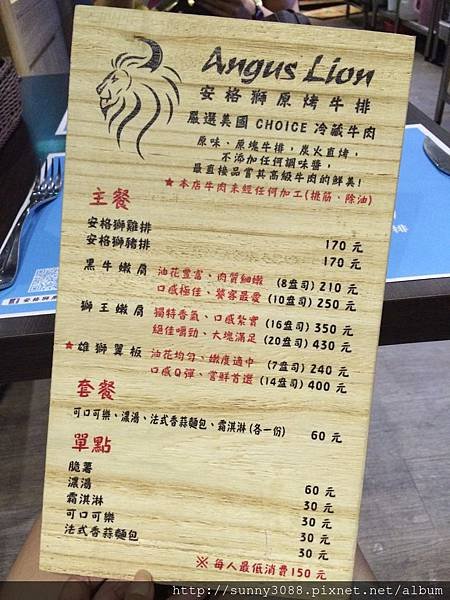 Angus Lion
安格獅原烤牛排
嚴選美國 CHOICE 冷藏牛肉
原味、原塊牛排，炭火直烤，
不添加任何調味醬，
最直接品嘗其高級牛肉的鮮美!
★本店牛肉未經任何加工(挑筋、除油)
主餐
安格獅雞排 170 元
安格獅豬排 170 元
黑牛嫩肩 油花豐富、肉質細嫩 (8盎司) 210 元
口感極佳、饕客最愛 (10盎司) 250 元
獅王嫩肩 獨特香氣、口感紮實 (16盎司) 350 元
絕佳嚼勁、大塊滿足 (20盎司) 430 元
★雄獅翼板 油花均勻、嫩度適中 (7盎司) 240 元
口感Q彈、嘗鮮首選 (14盎司) 400 元
套餐
可口可樂、濃湯、法式香蒜麵包、霜淇淋(各一份) 60 元
單點
脆薯 60 元
濃湯 30 元
霜淇淋 30 元
可口可樂 30 元
法式香蒜麵包 30 元
※ 每人最低消費150元
http://sunny3088.pixnet.net/album